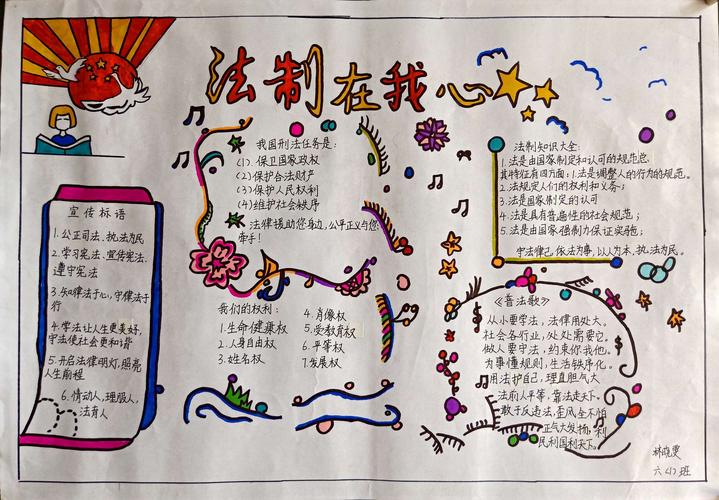 法制在我心
宣传标语
1.公正司法、执法为民
2.学习宪法、宣传宪法、
遵守宪法
3.知律法于心,守律法于
行
4.学法让人生更美好,
守法使社会更和谐
5.开启法律明灯,照亮
人生前程
6.情动人,理服人,
法育人
我国刑法任务是:
(1).保卫国家政权
(2)保护合法财产
(3)保护人民权利
(4)维护社会秩序
法律援助您身边,公平正义与您
牵手!
我们的权利:
1.生命健康权
2.人身自由权
3.姓名权
4.肖像权
5.受教育权
6.平等权
7.发展权
法制知识大全:
1.法是由国家制定和认可的规范总
其特征有四方面:1.法是调整人的行为的规范。
2.法规定人们的权利和义务;
3.法是国家制定的认可
4.法是具有普遍性的社会规范;
5.法是由国家强制力保证实施;
守法律己,依法为事,以人为本,执法为民。
《普法歌》
从小要学法,法律用处大。
社会各行业,处处需要它。
做人要守法,约束你我他。
为事懂规则,生活秩序化。
用法护自己,理直胆气大
法前人平等,靠法走天下。
敢于反违法,歪风全不怕
正气大发扬,利
民利国利天下。
林晓雯
六(1)班